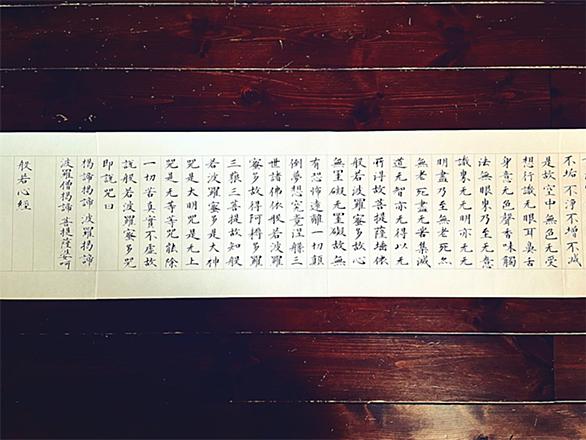 不垢不淨不增不減
是故空中無色无受
想行識无眼耳鼻舌
身意无色聲香味觸
法無眼界乃至无意
識界无无明亦无无
明盡乃至無老死亦
無老死盡无苦集滅
道无智亦无得以无
所得故菩提薩埵依
般若波羅蜜多故心
無罣礙无罣礙故無
有恐怖遠離一切顛
倒夢想究竟涅槃三
世諸佛依般若波羅
蜜多故得阿耨多羅
三藐三菩提故知般
若波羅蜜多是大神
咒是大明咒是无上
咒是无等等咒能除
一切苦真實不虛故
說般若波羅蜜多咒
即說咒曰
揭諦揭諦 波羅揭諦
波羅僧揭諦 菩提薩婆呵
般若心經